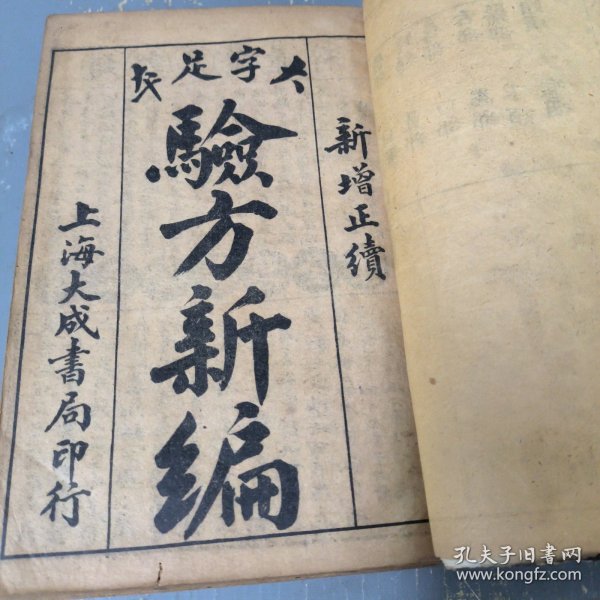 大字足本
新增正續
驗方新編
上海大成書局印行
孔夫子旧书网
www.kongfz.com